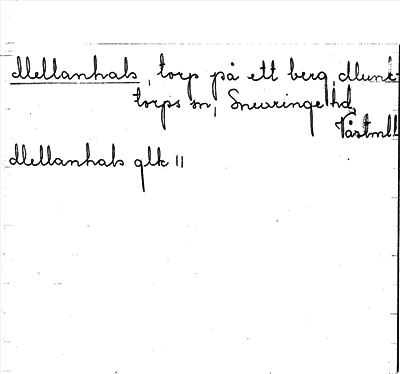 Mellanhals, torp på ett berg, Munk-
torps sn, Snevringe hd,
Västmll
Mellanhals glk 11